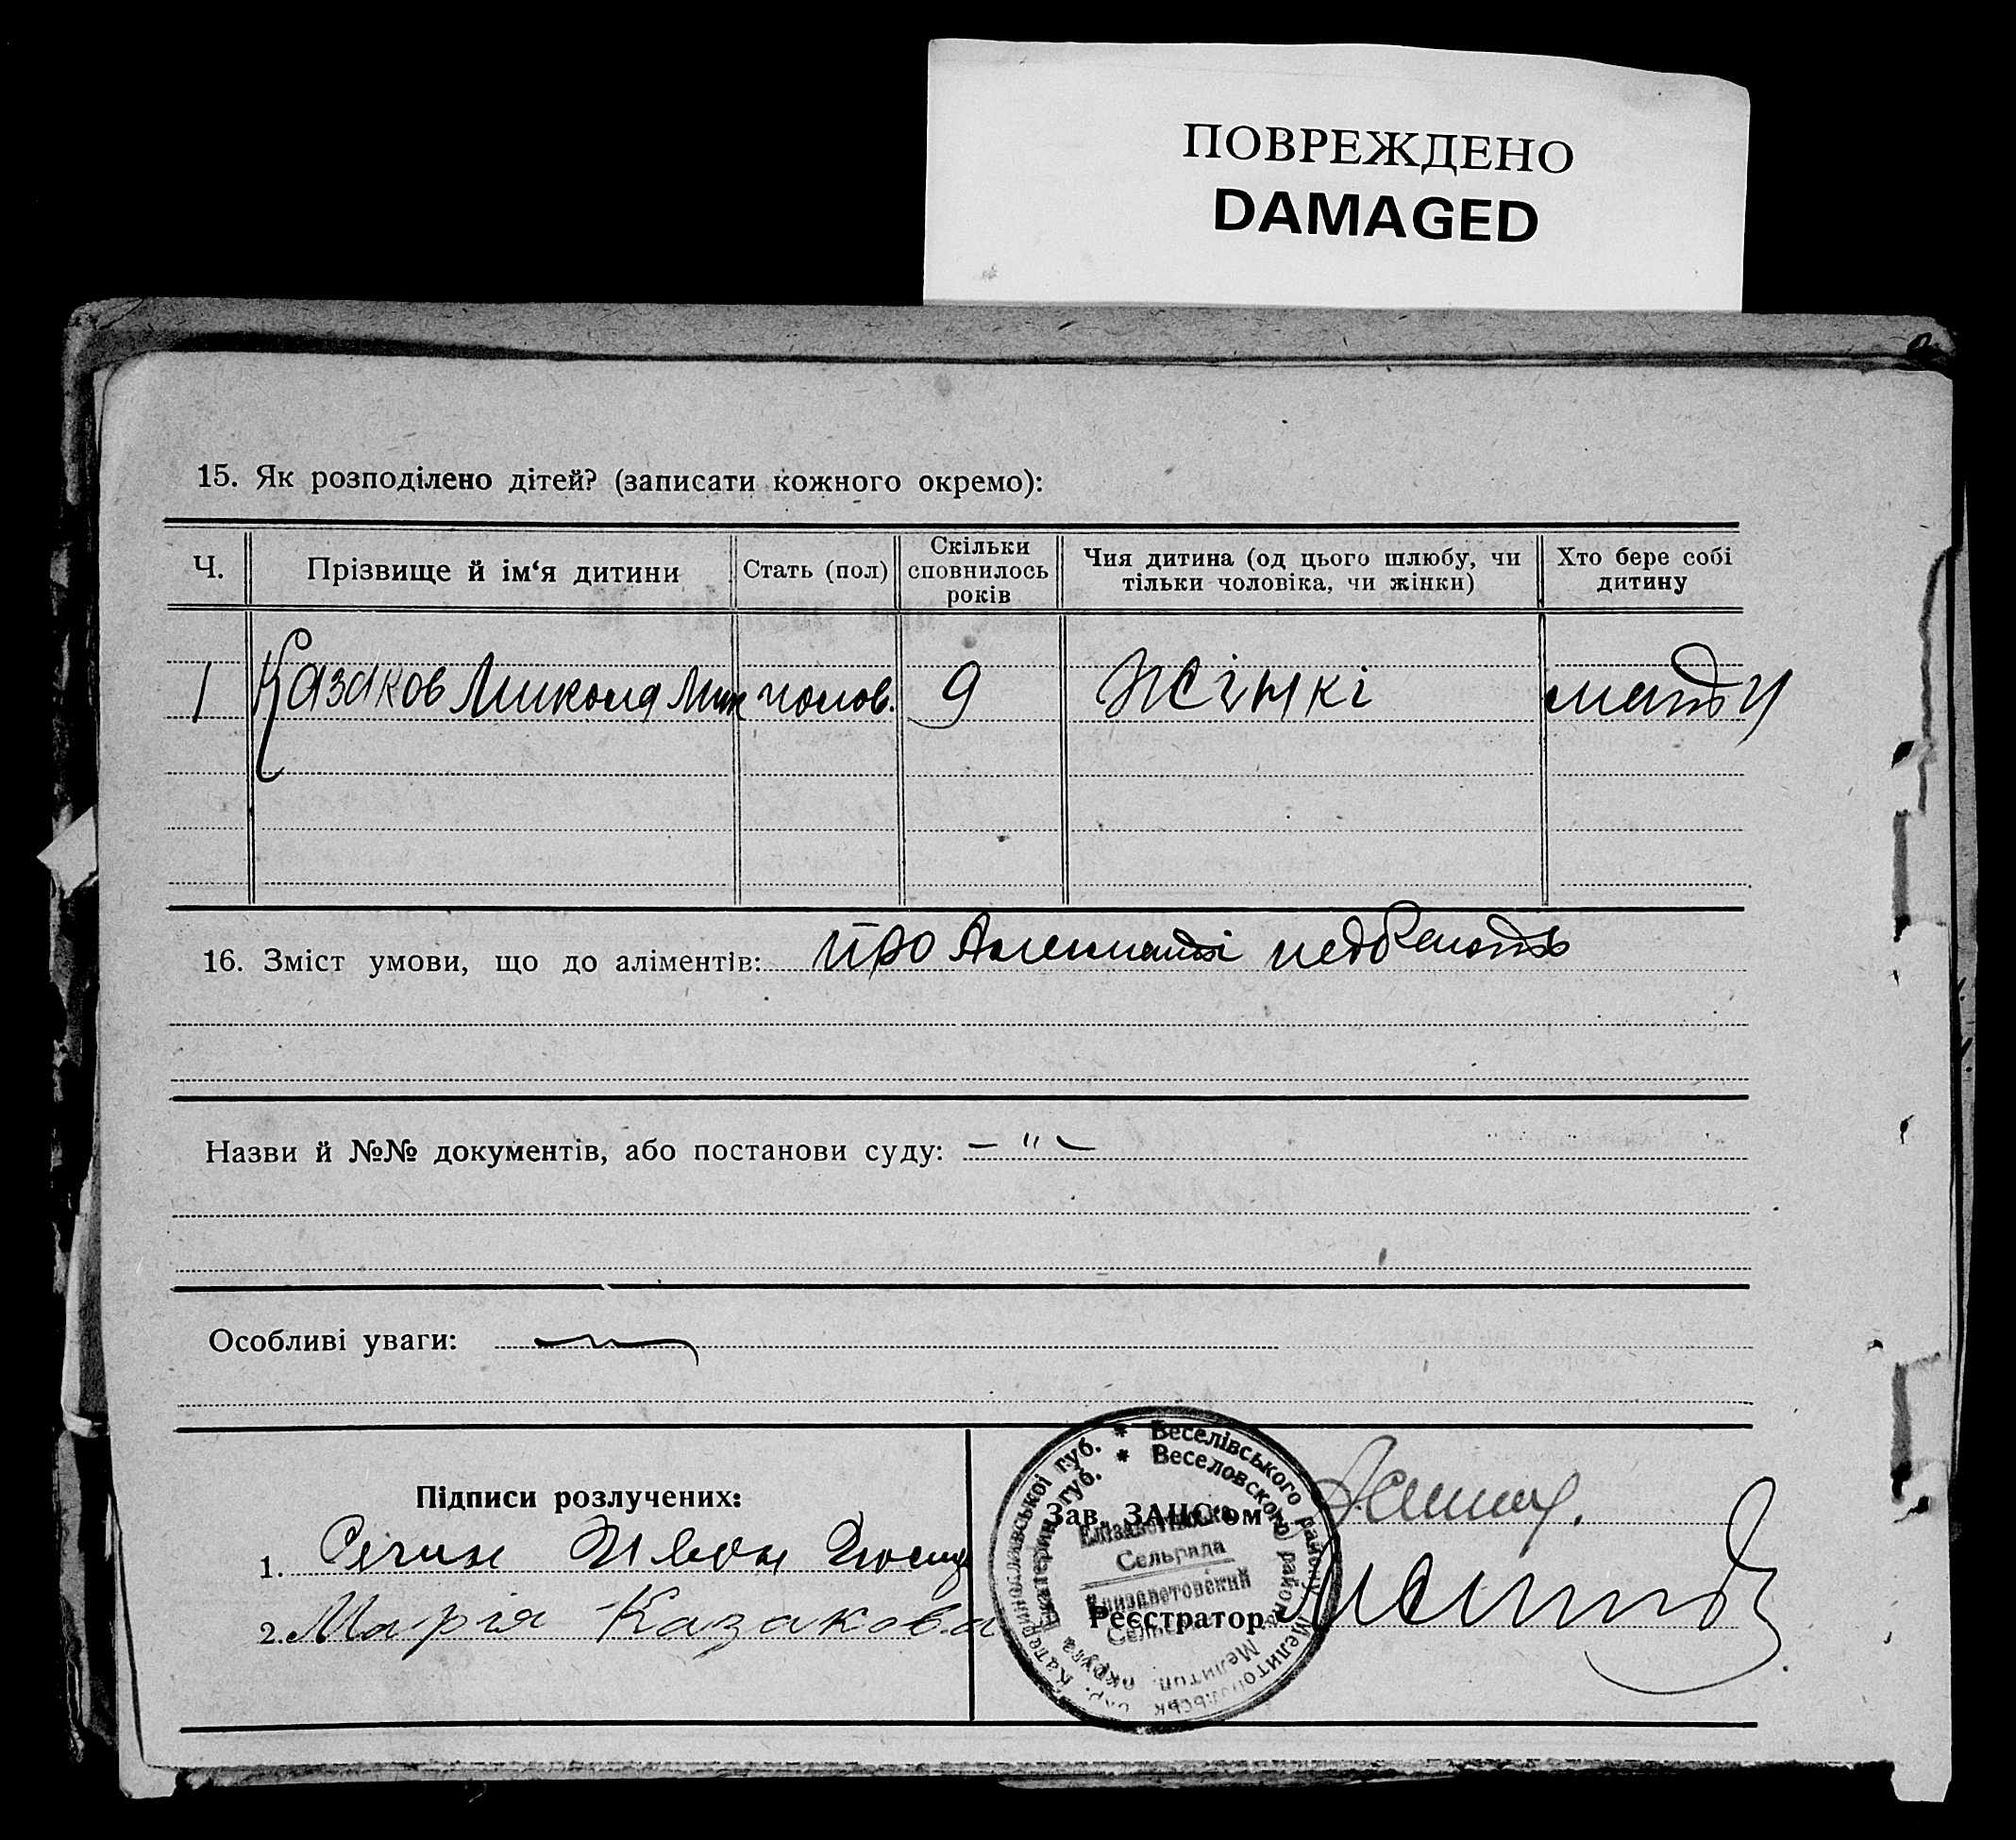 ПОВРЕЖДЕНО
DAMAGED
15. Як розподілено дітей? (записати кожного окремо):
Ч. Прізвище й ім‘я дитини Стать (пол) Скільки сповнилось років Чия дитина (од цього шлюбу, чи тільки чоловіка, чи жінки) Хто бере собі дитину
1 Казаков Микола Мик чолов. 9 Жінкі
16. Зміст умови, що до аліментів: про
Назви й №№ документів, або постанови суду: — " —
Особливі уваги:
Підписи розлучених:
1. Иван
2. Марія Казакова
Зав. ЗАГС‘ом
Реєстратор
Веселівського району Мелитопольськ. окр. Катеринославської губ.
Веселовского района Мелитоп. округа Екатерин. губ.
Сельрада
Елизаветовский